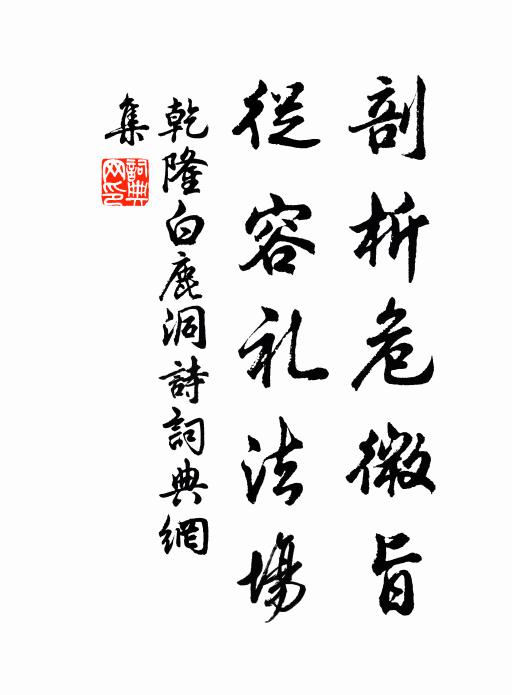 剖析危微旨
從容礼法場
乾隆白鹿洞詩詞典網
集
詞典
网印